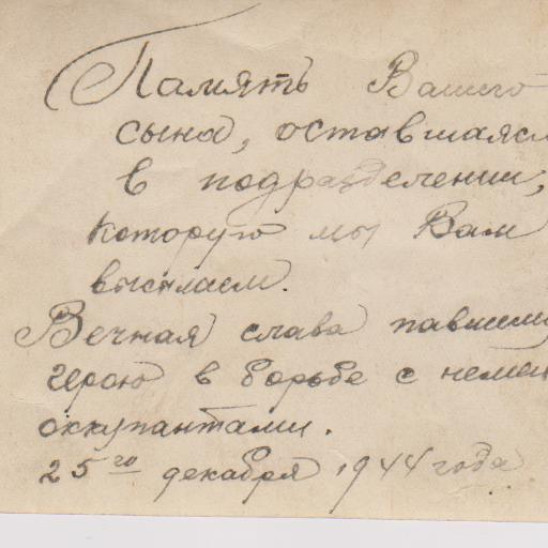 Память Вашего
сына, оставшаяся
в подразделении,
которую мы Вам
высылаем.
Вечная слава павшему
герою в борьбе с немец
оккупантами.
25го декабря 1944 года